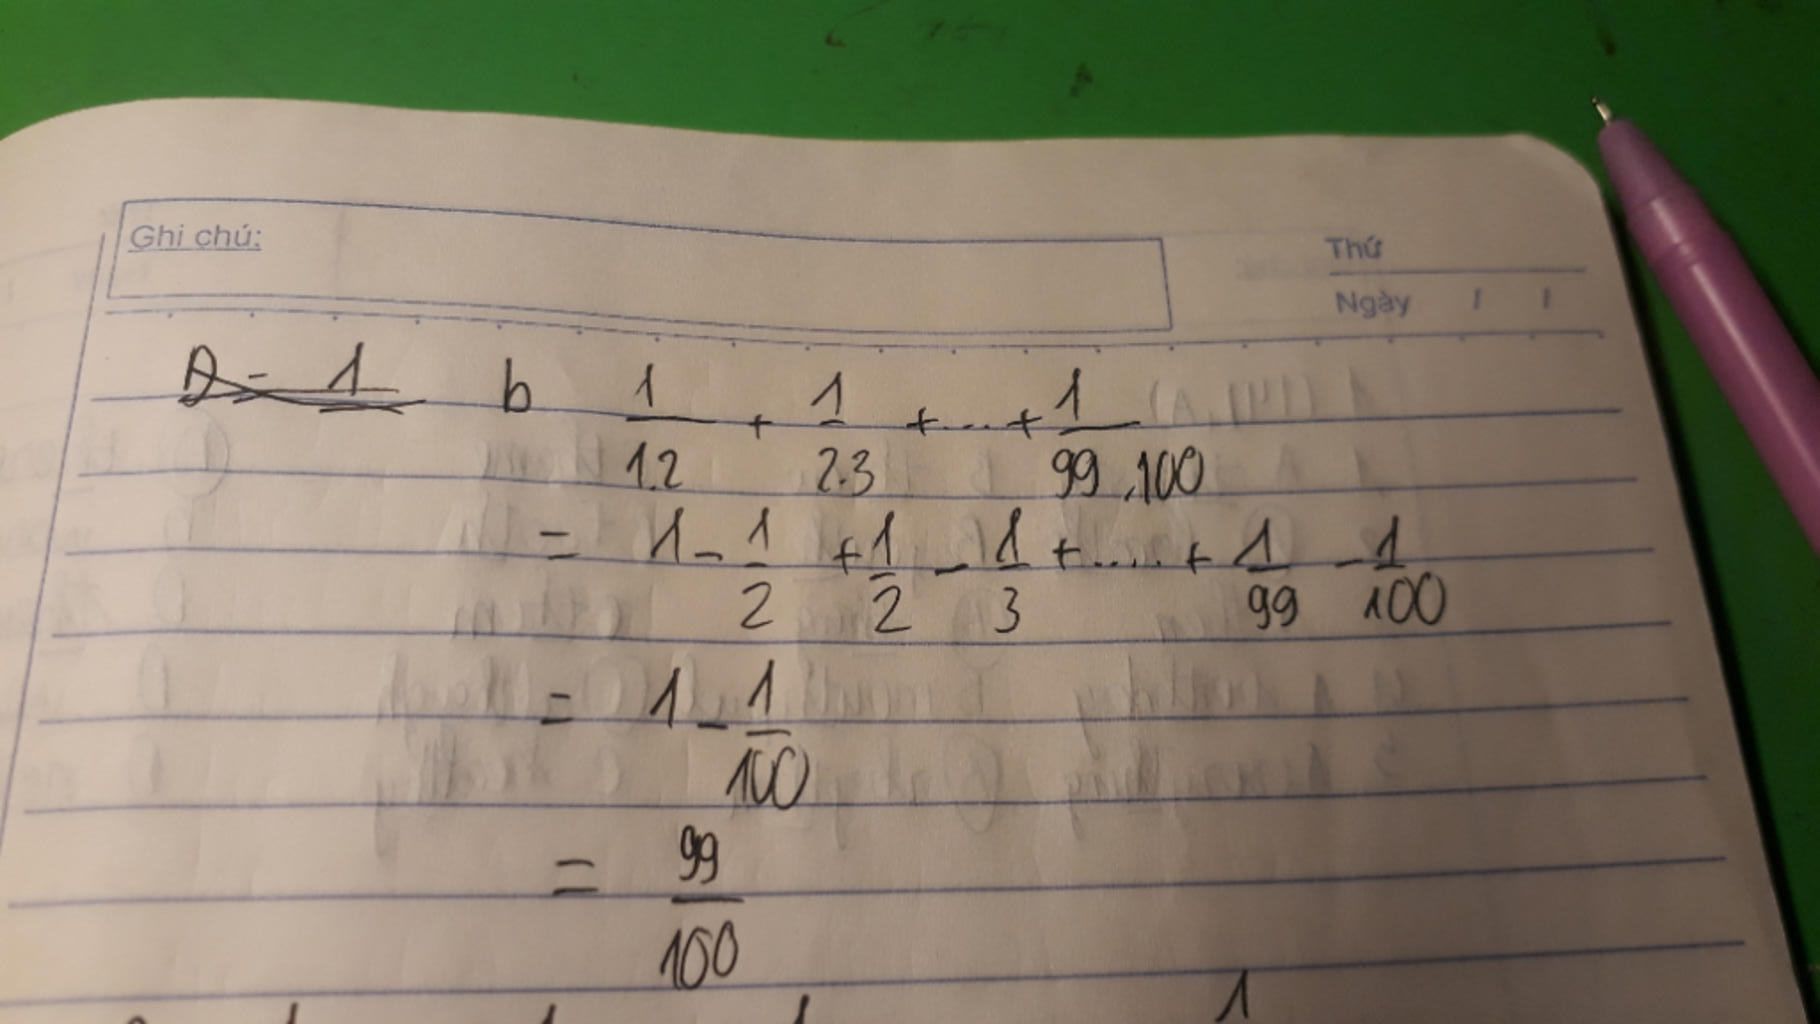 Ghi chú:
Thứ
Ngày / /
b 1/1.2 + 1/2.3 + ... + 1/99.100
= 1 - 1/2 + 1/2 - 1/3 + ..... + 1/99 - 1/100
= 1 - 1/100
= 99/100